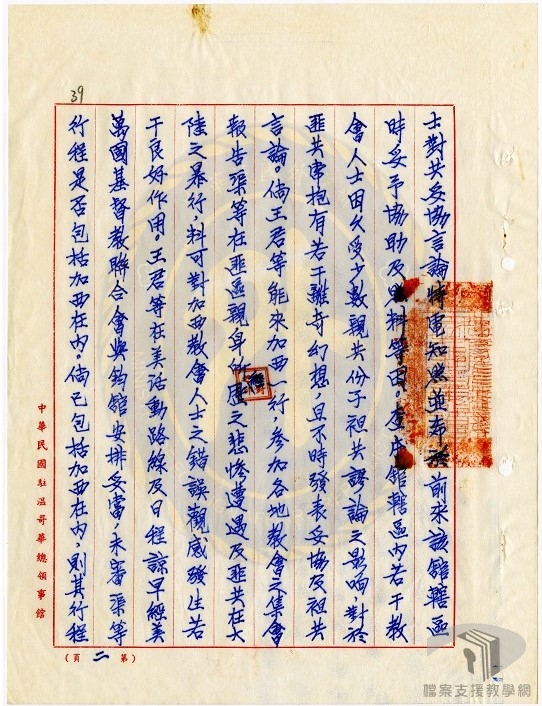 39
士對共妥協言論特電知照並希於前來該館轄區
時妥予協助及照料等因。查本館轄區內若干教
會人士因久受少數親共份子袒共謬論之影响，對於
匪共常抱有若干離奇幻想，且不時發表妥協及袒共
言論。倘王君等能來加西一行，參加各地教會之集會
報告渠等在匪區親身所歷之悲慘遭遇及匪共在大
陸之暴行，料可對加西教會人士之錯誤觀感發生若
干良好作用。王君等在美活動路線及日程諒早經美
萬國基督教聯合會與鈞館安排妥當，未審渠等
行程是否包括加西在內。倘已包括加西在內，則其行程
中華民國駐溫哥華總領事館
(頁 二 第)
檔案支援教學網